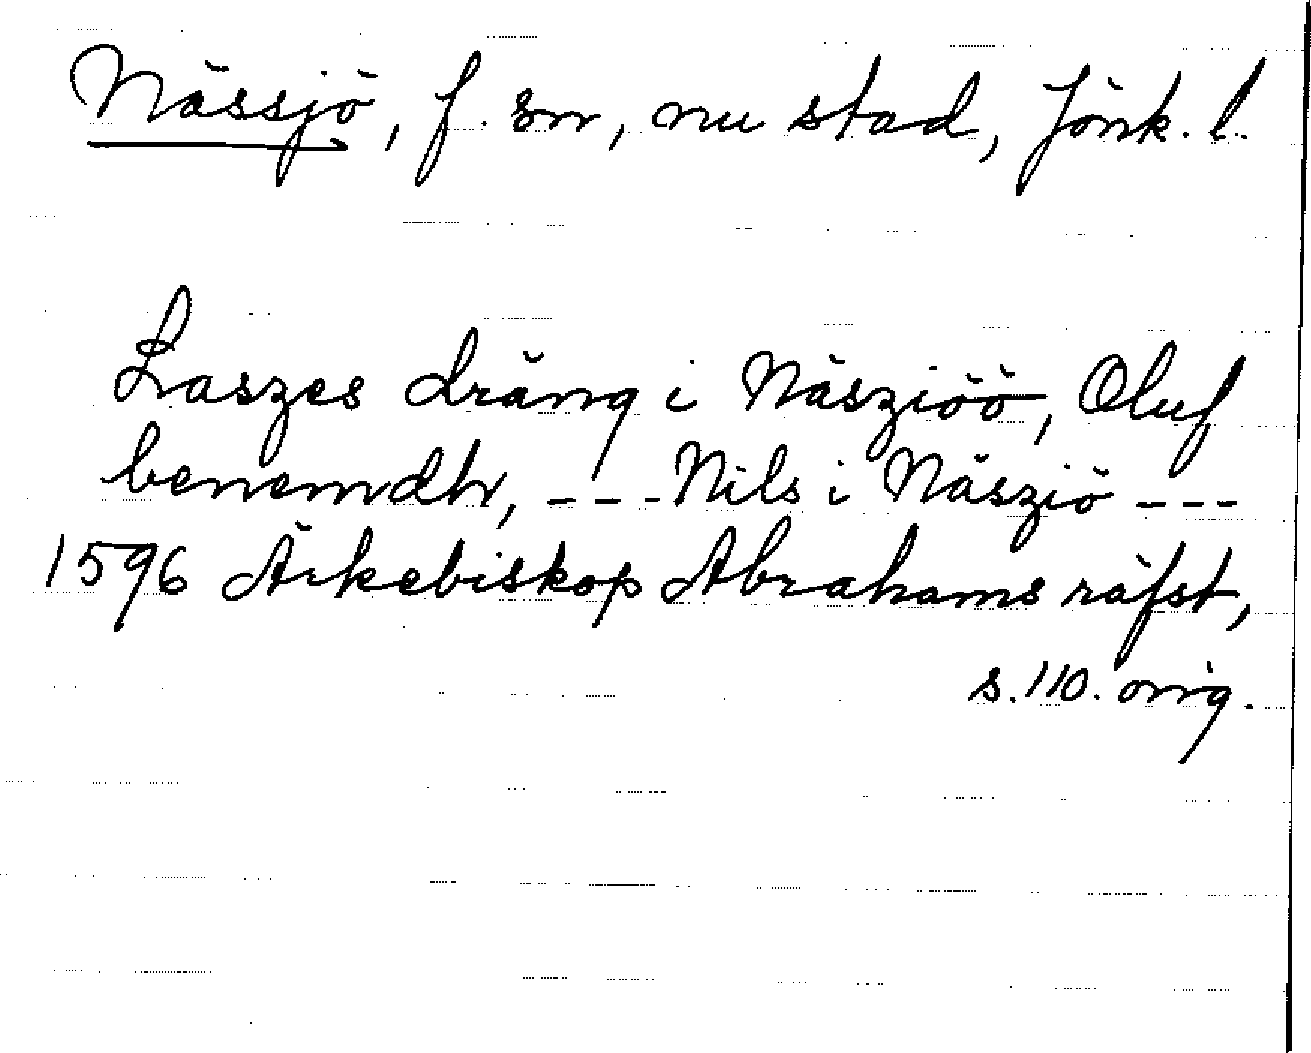 Nässjö, f. sn, nu stad, Jönk. l.
Laszes dräng i Näsziöö, Oluf
benemdh, --- Nils i Näsziö ---
1596 Ärkebiskop Abrahams räfst,
s. 110. orig.